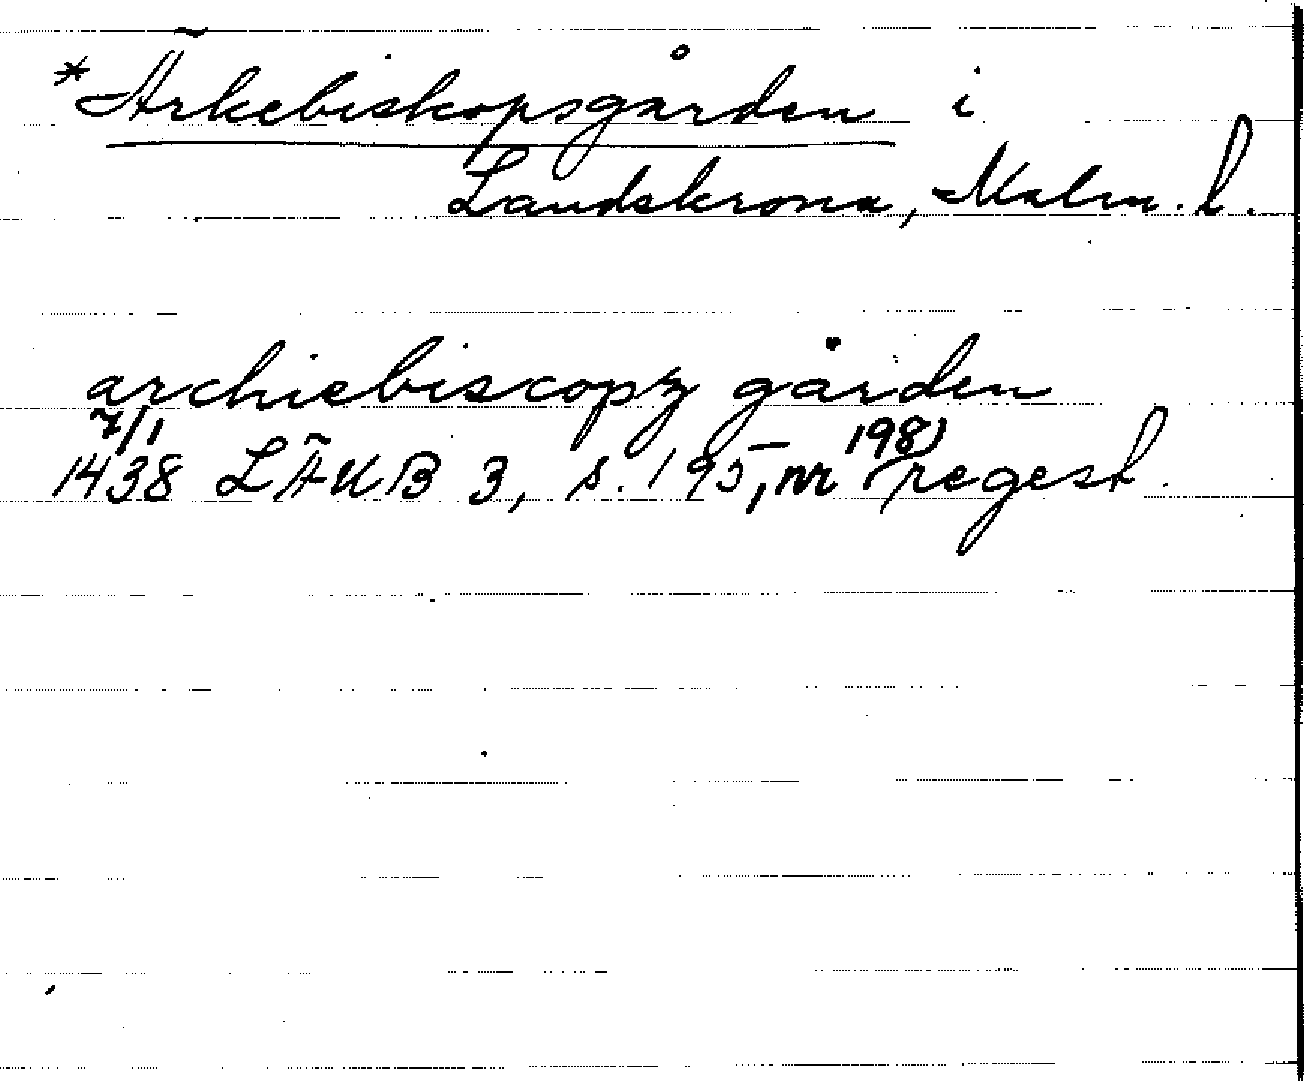 *Ärkebiskopsgården i
Landskrona, Malm. l.
archiebiscopz gården
7/1
1438 LÄUB 3, s. 195, nr 198) regest.